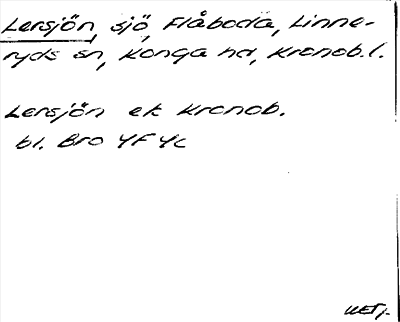 Lersjön, sjö, Flåboda, Linne-
ryds sn, Konga hd, Kronob.l.
Lersjön ek Kronob.
bl. Bro 4F4c